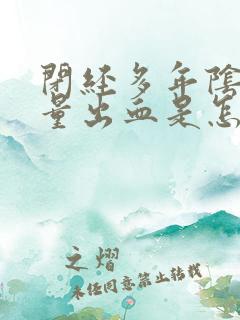 閉経多年陰
量出血是怎
之熠
未经同意禁止转载